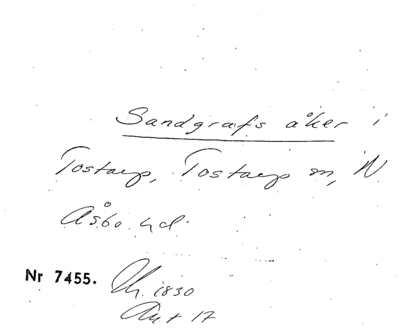 Sandgrafs åker i
Tostarp, Tostarp sn, N
Åsbo hd.
Nr 7455. 1830
Akt 17